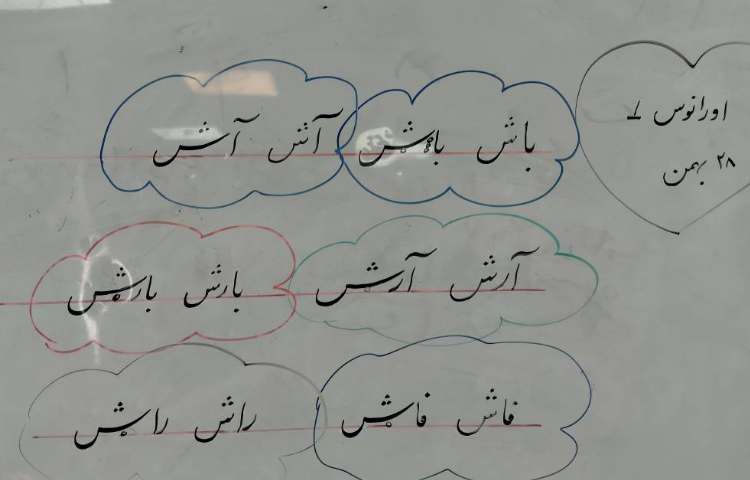 اورانوس ۷
۲۸ بهمن
باش باش
آتش آتش
آرش آرش
بارش بارش
فاش فاش
راش راش